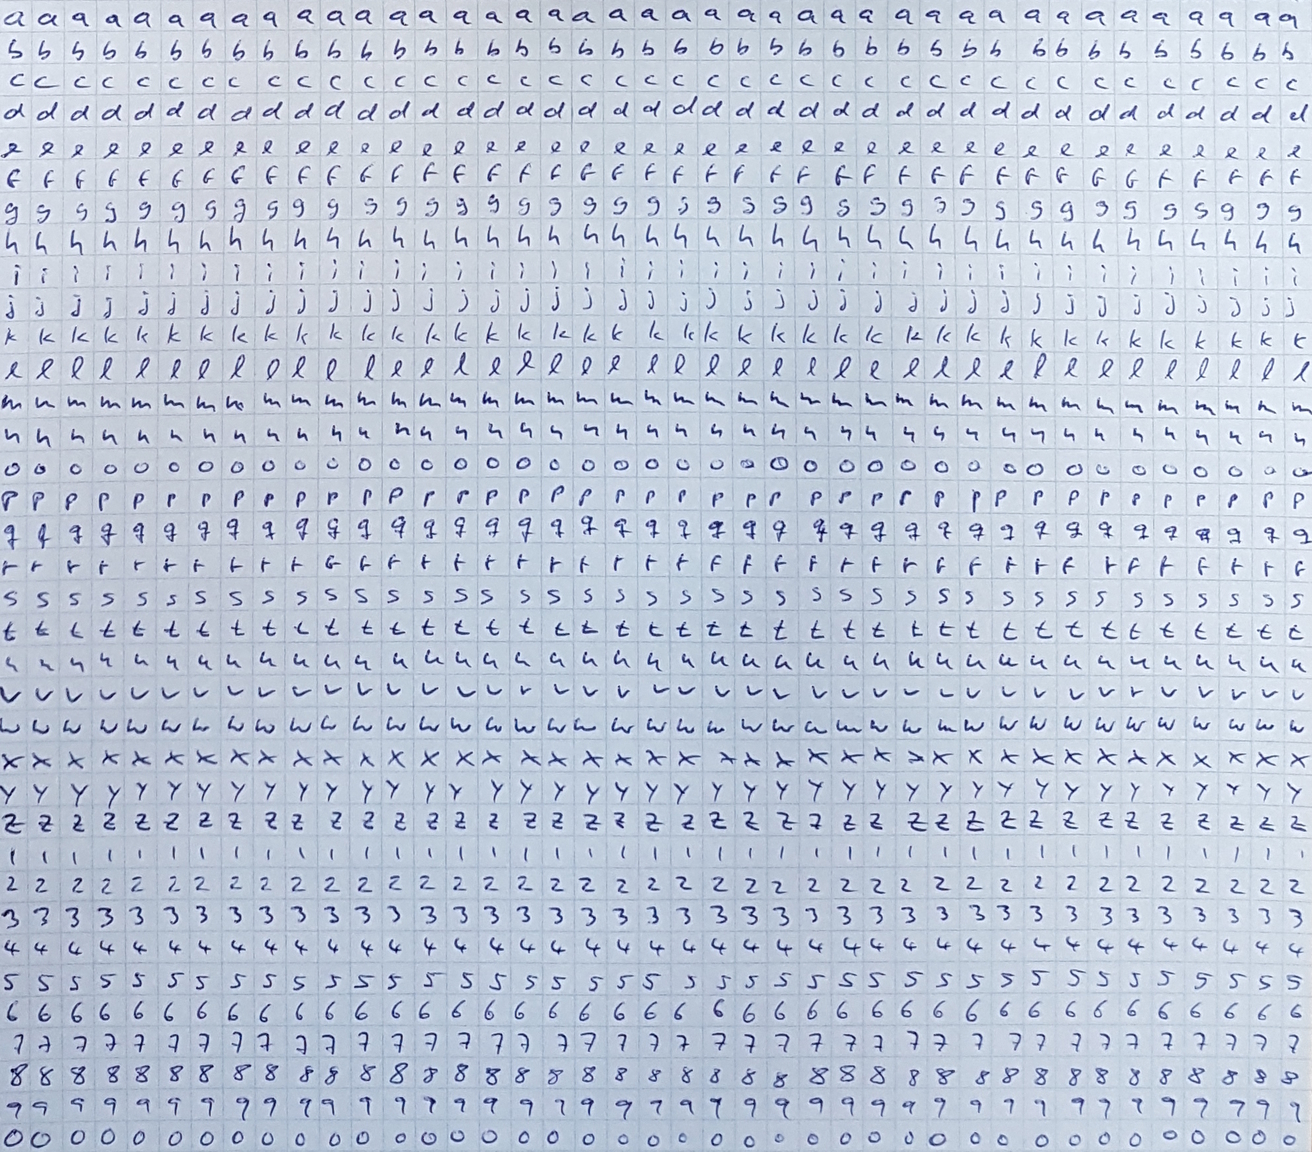 a a a a a a a a a a a a a a a a a a a a a a a a a a a a a a a a a a a a a a a a a
b b b b b b b b b b b b b b b b b b b b b b b b b b b b b b b b b b b b b b b b b
c c c c c c c c c c c c c c c c c c c c c c c c c c c c c c c c c c c c c c c c c
d d d d d d d d d d d d d d d d d d d d d d d d d d d d d d d d d d d d d d d d d
e e e e e e e e e e e e e e e e e e e e e e e e e e e e e e e e e e e e e e e e e
f f f f f f f f f f f f f f f f f f f f f f f f f f f f f f f f f f f f f f f f f
g g g g g g g g g g g g g g g g g g g g g g g g g g g g g g g g g g g g g g g g g
h h h h h h h h h h h h h h h h h h h h h h h h h h h h h h h h h h h h h h h h h
i i i i i i i i i i i i i i i i i i i i i i i i i i i i i i i i i i i i i i i i i
j j j j j j j j j j j j j j j j j j j j j j j j j j j j j j j j j j j j j j j j j
k k k k k k k k k k k k k k k k k k k k k k k k k k k k k k k k k k k k k k k k k
l l l l l l l l l l l l l l l l l l l l l l l l l l l l l l l l l l l l l l l l l
m m m m m m m m m m m m m m m m m m m m m m m m m m m m m m m m m m m m m m m m m
n n n n n n n n n n n n n n n n n n n n n n n n n n n n n n n n n n n n n n n n n
o o o o o o o o o o o o o o o o o o o o o o o o o o o o o o o o o o o o o o o o o
p p p p p p p p p p p p p p p p p p p p p p p p p p p p p p p p p p p p p p p p p
q q q q q q q q q q q q q q q q q q q q q q q q q q q q q q q q q q q q q q q q q
r r r r r r r r r r r r r r r r r r r r r r r r r r r r r r r r r r r r r r r r r
s s s s s s s s s s s s s s s s s s s s s s s s s s s s s s s s s s s s s s s s s
t t t t t t t t t t t t t t t t t t t t t t t t t t t t t t t t t t t t t t t t t
u u u u u u u u u u u u u u u u u u u u u u u u u u u u u u u u u u u u u u u u u
v v v v v v v v v v v v v v v v v v v v v v v v v v v v v v v v v v v v v v v v v
w w w w w w w w w w w w w w w w w w w w w w w w w w w w w w w w w w w w w w w w w
x x x x x x x x x x x x x x x x x x x x x x x x x x x x x x x x x x x x x x x x x
y y y y y y y y y y y y y y y y y y y y y y y y y y y y y y y y y y y y y y y y y
z z z z z z z z z z z z z z z z z z z z z z z z z z z z z z z z z z z z z z z z z
1 1 1 1 1 1 1 1 1 1 1 1 1 1 1 1 1 1 1 1 1 1 1 1 1 1 1 1 1 1 1 1 1 1 1 1 1 1 1 1 1
2 2 2 2 2 2 2 2 2 2 2 2 2 2 2 2 2 2 2 2 2 2 2 2 2 2 2 2 2 2 2 2 2 2 2 2 2 2 2 2 2
3 3 3 3 3 3 3 3 3 3 3 3 3 3 3 3 3 3 3 3 3 3 3 3 3 3 3 3 3 3 3 3 3 3 3 3 3 3 3 3 3
4 4 4 4 4 4 4 4 4 4 4 4 4 4 4 4 4 4 4 4 4 4 4 4 4 4 4 4 4 4 4 4 4 4 4 4 4 4 4 4 4
5 5 5 5 5 5 5 5 5 5 5 5 5 5 5 5 5 5 5 5 5 5 5 5 5 5 5 5 5 5 5 5 5 5 5 5 5 5 5 5 5
6 6 6 6 6 6 6 6 6 6 6 6 6 6 6 6 6 6 6 6 6 6 6 6 6 6 6 6 6 6 6 6 6 6 6 6 6 6 6 6 6
7 7 7 7 7 7 7 7 7 7 7 7 7 7 7 7 7 7 7 7 7 7 7 7 7 7 7 7 7 7 7 7 7 7 7 7 7 7 7 7 7
8 8 8 8 8 8 8 8 8 8 8 8 8 8 8 8 8 8 8 8 8 8 8 8 8 8 8 8 8 8 8 8 8 8 8 8 8 8 8 8 8
9 9 9 9 9 9 9 9 9 9 9 9 9 9 9 9 9 9 9 9 9 9 9 9 9 9 9 9 9 9 9 9 9 9 9 9 9 9 9 9 9
0 0 0 0 0 0 0 0 0 0 0 0 0 0 0 0 0 0 0 0 0 0 0 0 0 0 0 0 0 0 0 0 0 0 0 0 0 0 0 0 0